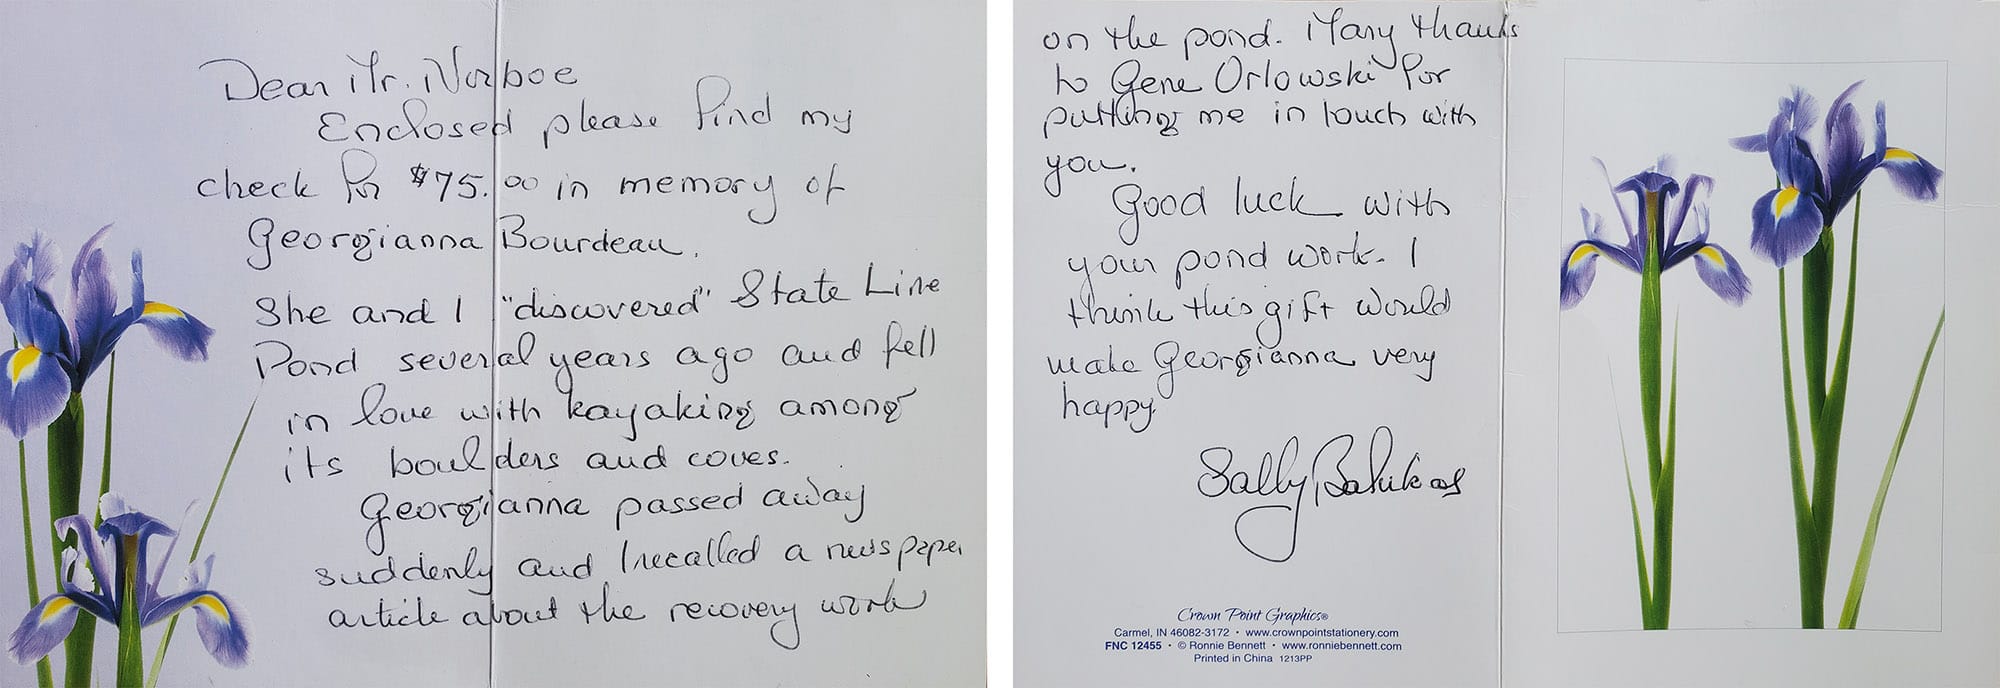 Dear Mr. Norboe
Enclosed please find my
check for $75.00 in memory of
Georgianna Bourdeau.
She and I "discovered" State Line
Pond several years ago and fell
in love with kayaking among
its boulders and coves.
Georgianna passed away
suddenly and I recalled a newspaper
article about the recovery work
on the pond. Many thanks
to Gene Orlowski for
putting me in touch with
you.
Good luck with
your pond work. I
think this gift would
make Georgianna very
happy.
Sally Balukas
Crown Point Graphics®
Carmel, IN 46082-3172 • www.crownpointstationery.com
FNC 12455 • © Ronnie Bennett • www.ronniebennett.com
Printed in China 1213PP